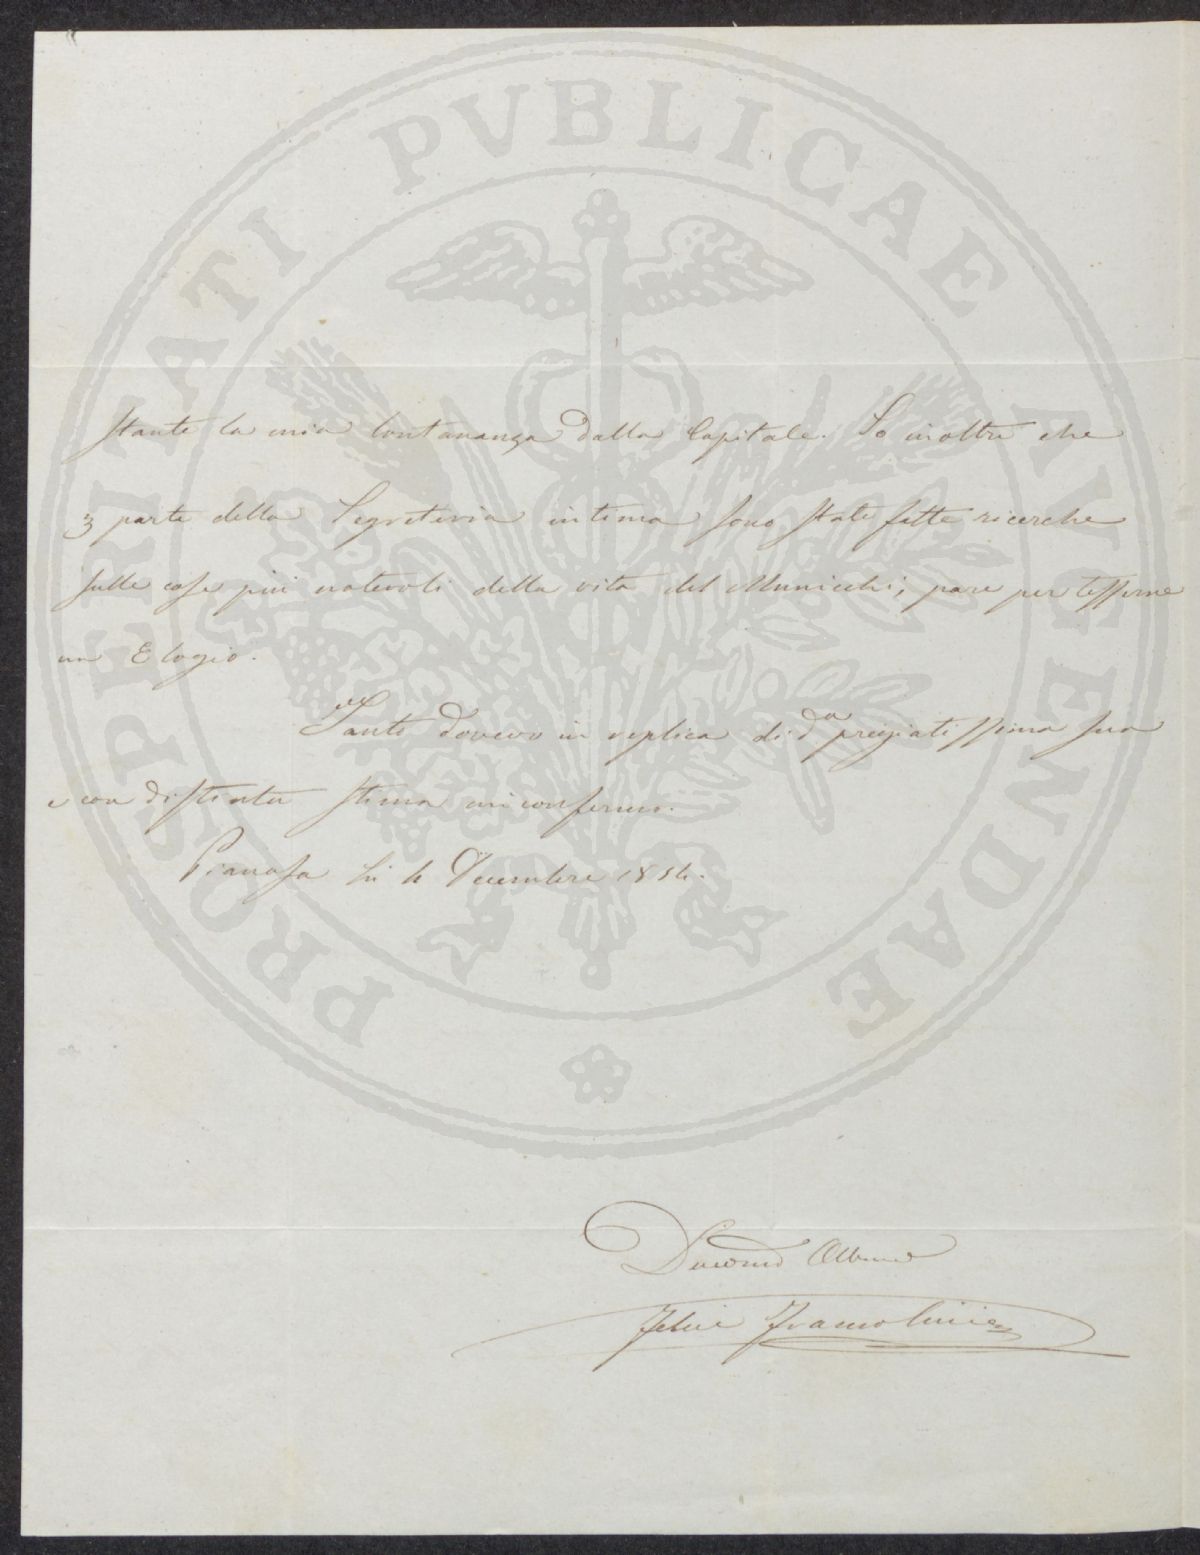 PROSPERITATI PVBLICAE AVGENDAE
stante la mia lontananza dalla Capitale. So inoltre che
3 parte della Segreteria intima sono state fatte ricerche
sulle cose più notevoli della vita del Municchi; pare per tesserne
un Elogio.
Tanto dovevo in replica di da pregiatissima sua
e con distinta stima mi confermo.
Pianosa li 4 Decembre 1854.
Felice Framolini